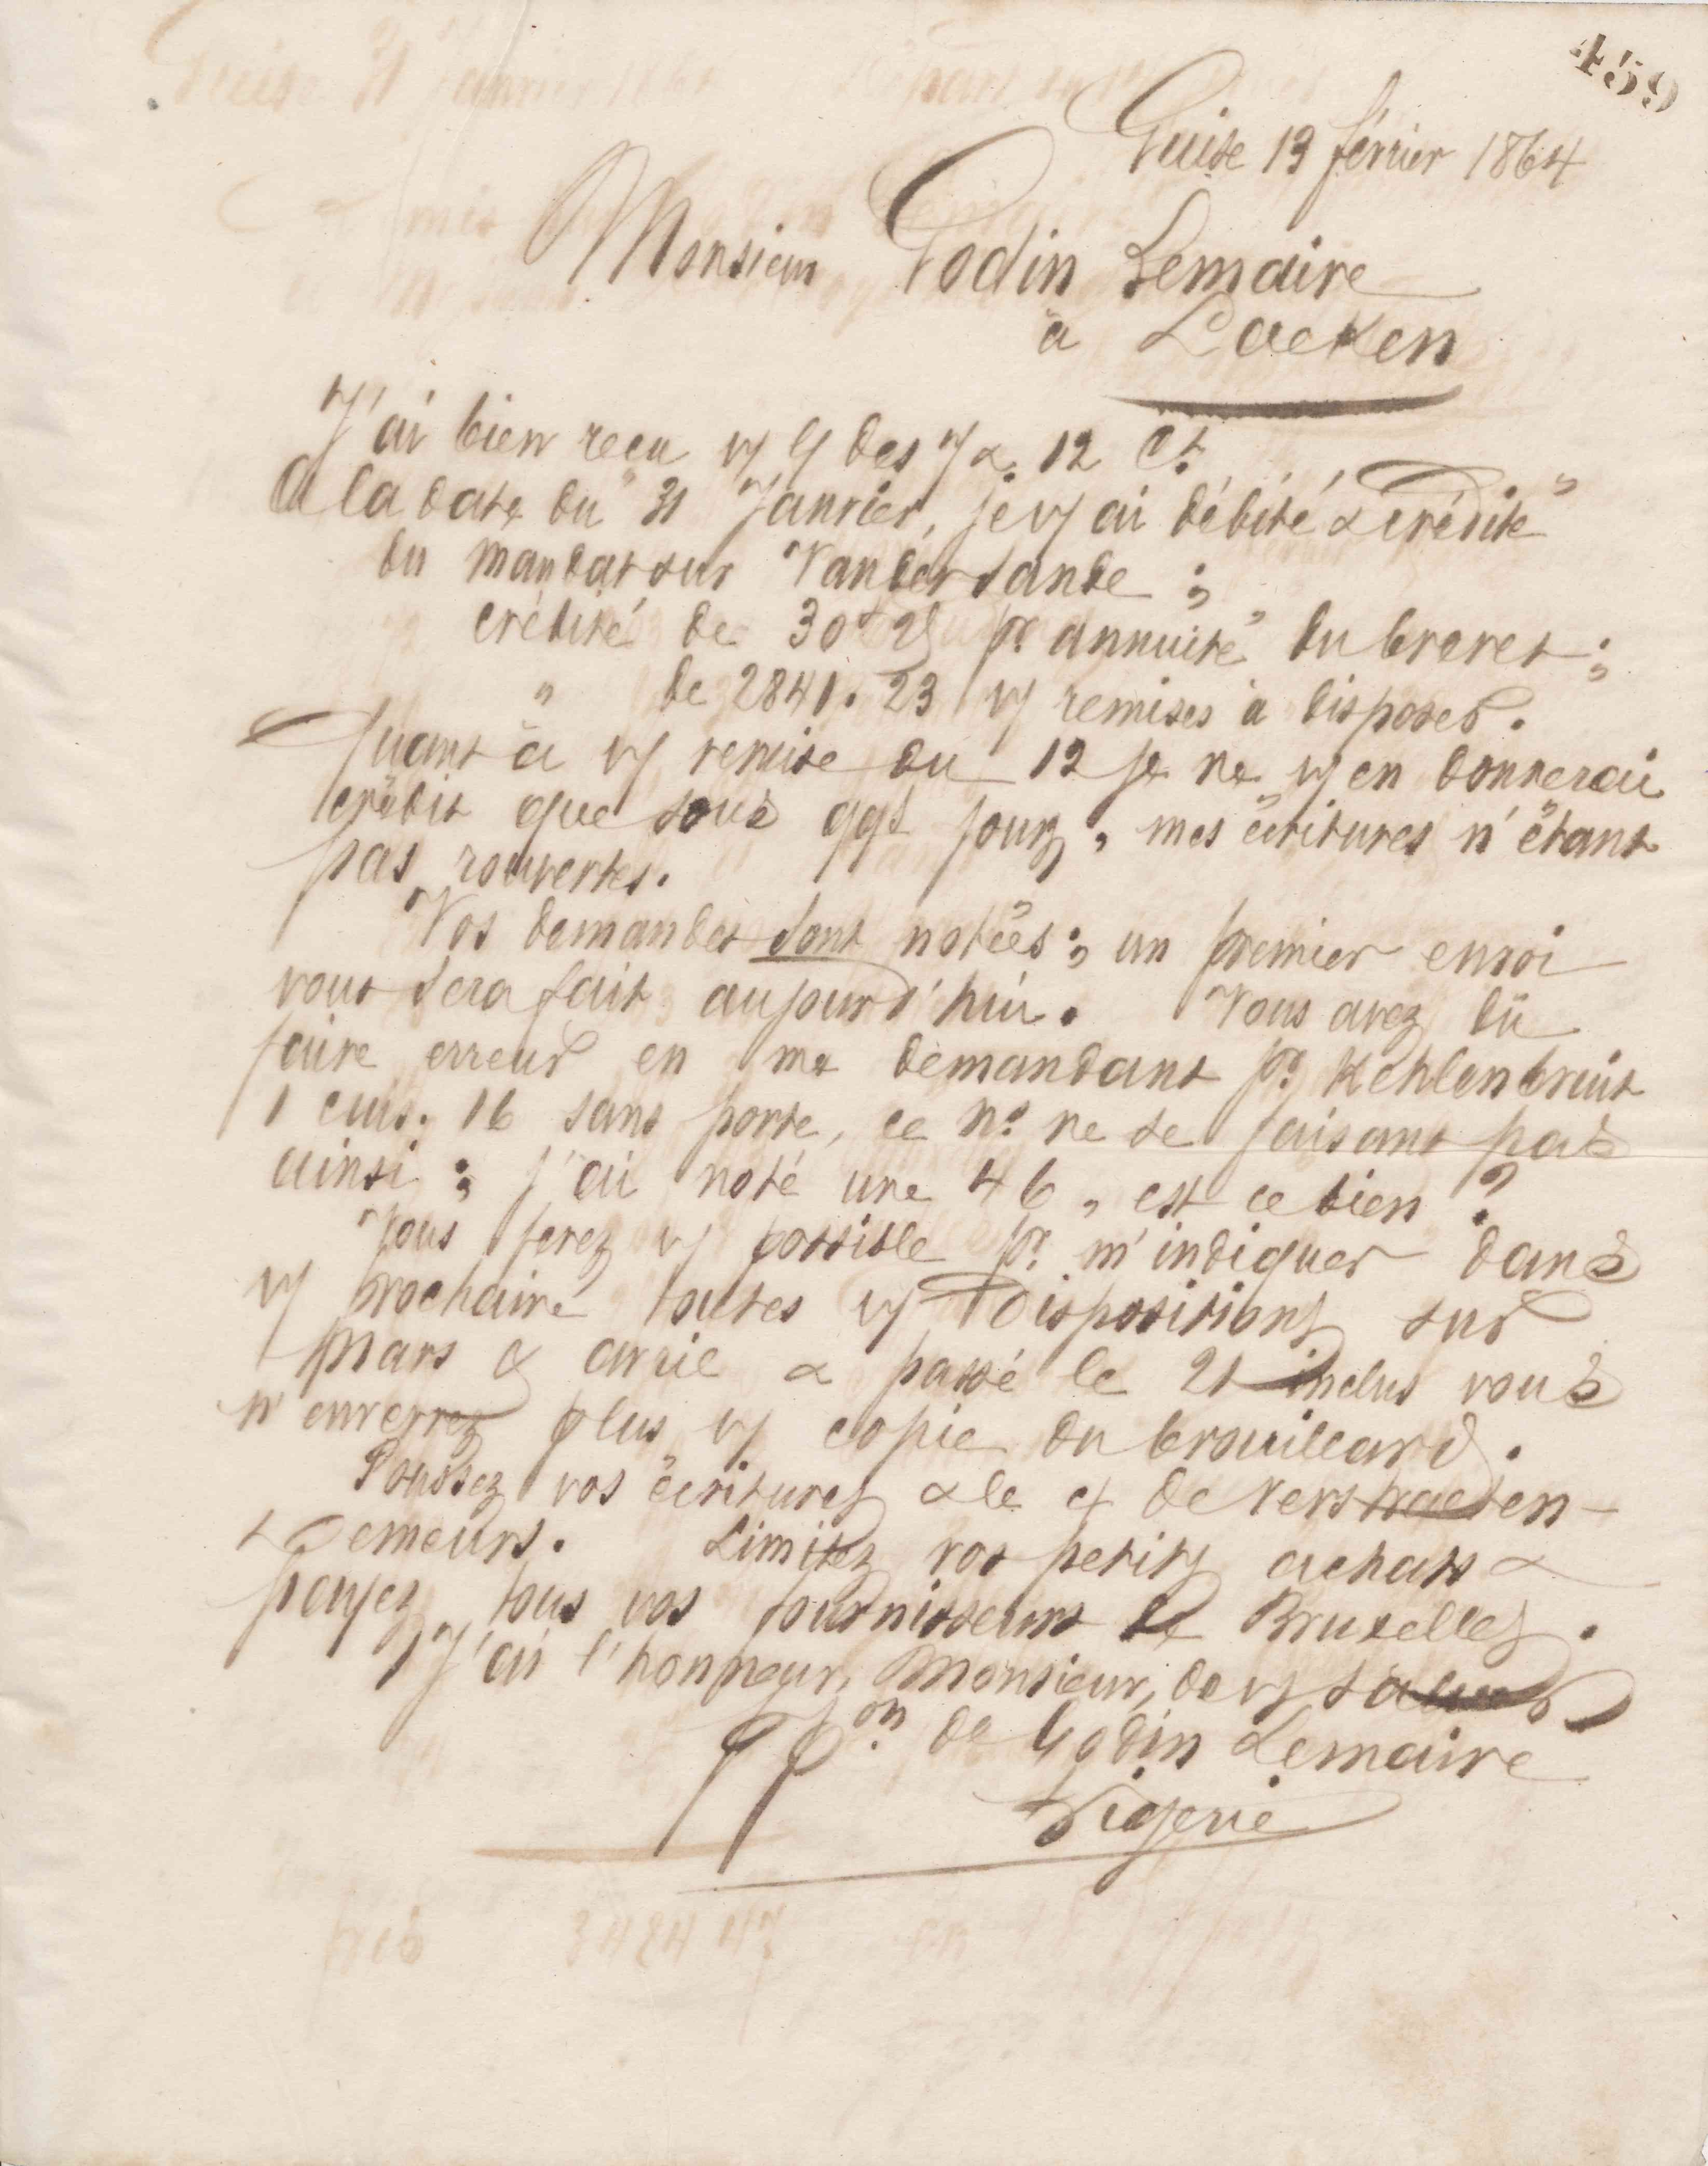 459
Guise 13 février 1864
Monsieur Godin Lemaire
à Laeken
J'ai bien reçu v/ l/ des 7 & 12 Ct
A la date du 31 Janvier, je v/ ai débité & crédité
du mandat sur Vandersande ;
crédité de 30 25 pr annuité du brevet ;
" de 2841. 23 v/ remises à disposer.
Quant à v/ remise du 12 je ne v/ en donnerai
crédit que sous qqs jours, mes écritures n'étant
pas rouvertes.
Vos demandes sont notées ; un premier envoi
vous sera fait aujourd'hui. Vous avez dû
faire erreur en me demandant pr Kehlenbruit
1 cuis. 16 sans porte, ce no ne se faisant pas
ainsi ; j'ai noté une 46, est ce bien ?
Vous ferez v/ possible pr m'indiquer dans
v/ prochaine toutes v/ dispositions sur
mars & avril & passé le 21 inclus vous
n'enverrez plus v/ copie du brouillard.
Poussez vos écritures & le c/ de Verstraeten-
Demeurs. Limitez vos petits achats &
payez tous vos fournisseurs de Bruxelles.
J'ai l'honneur, Monsieur, de v/ saluer
ppon de Godin Lemaire